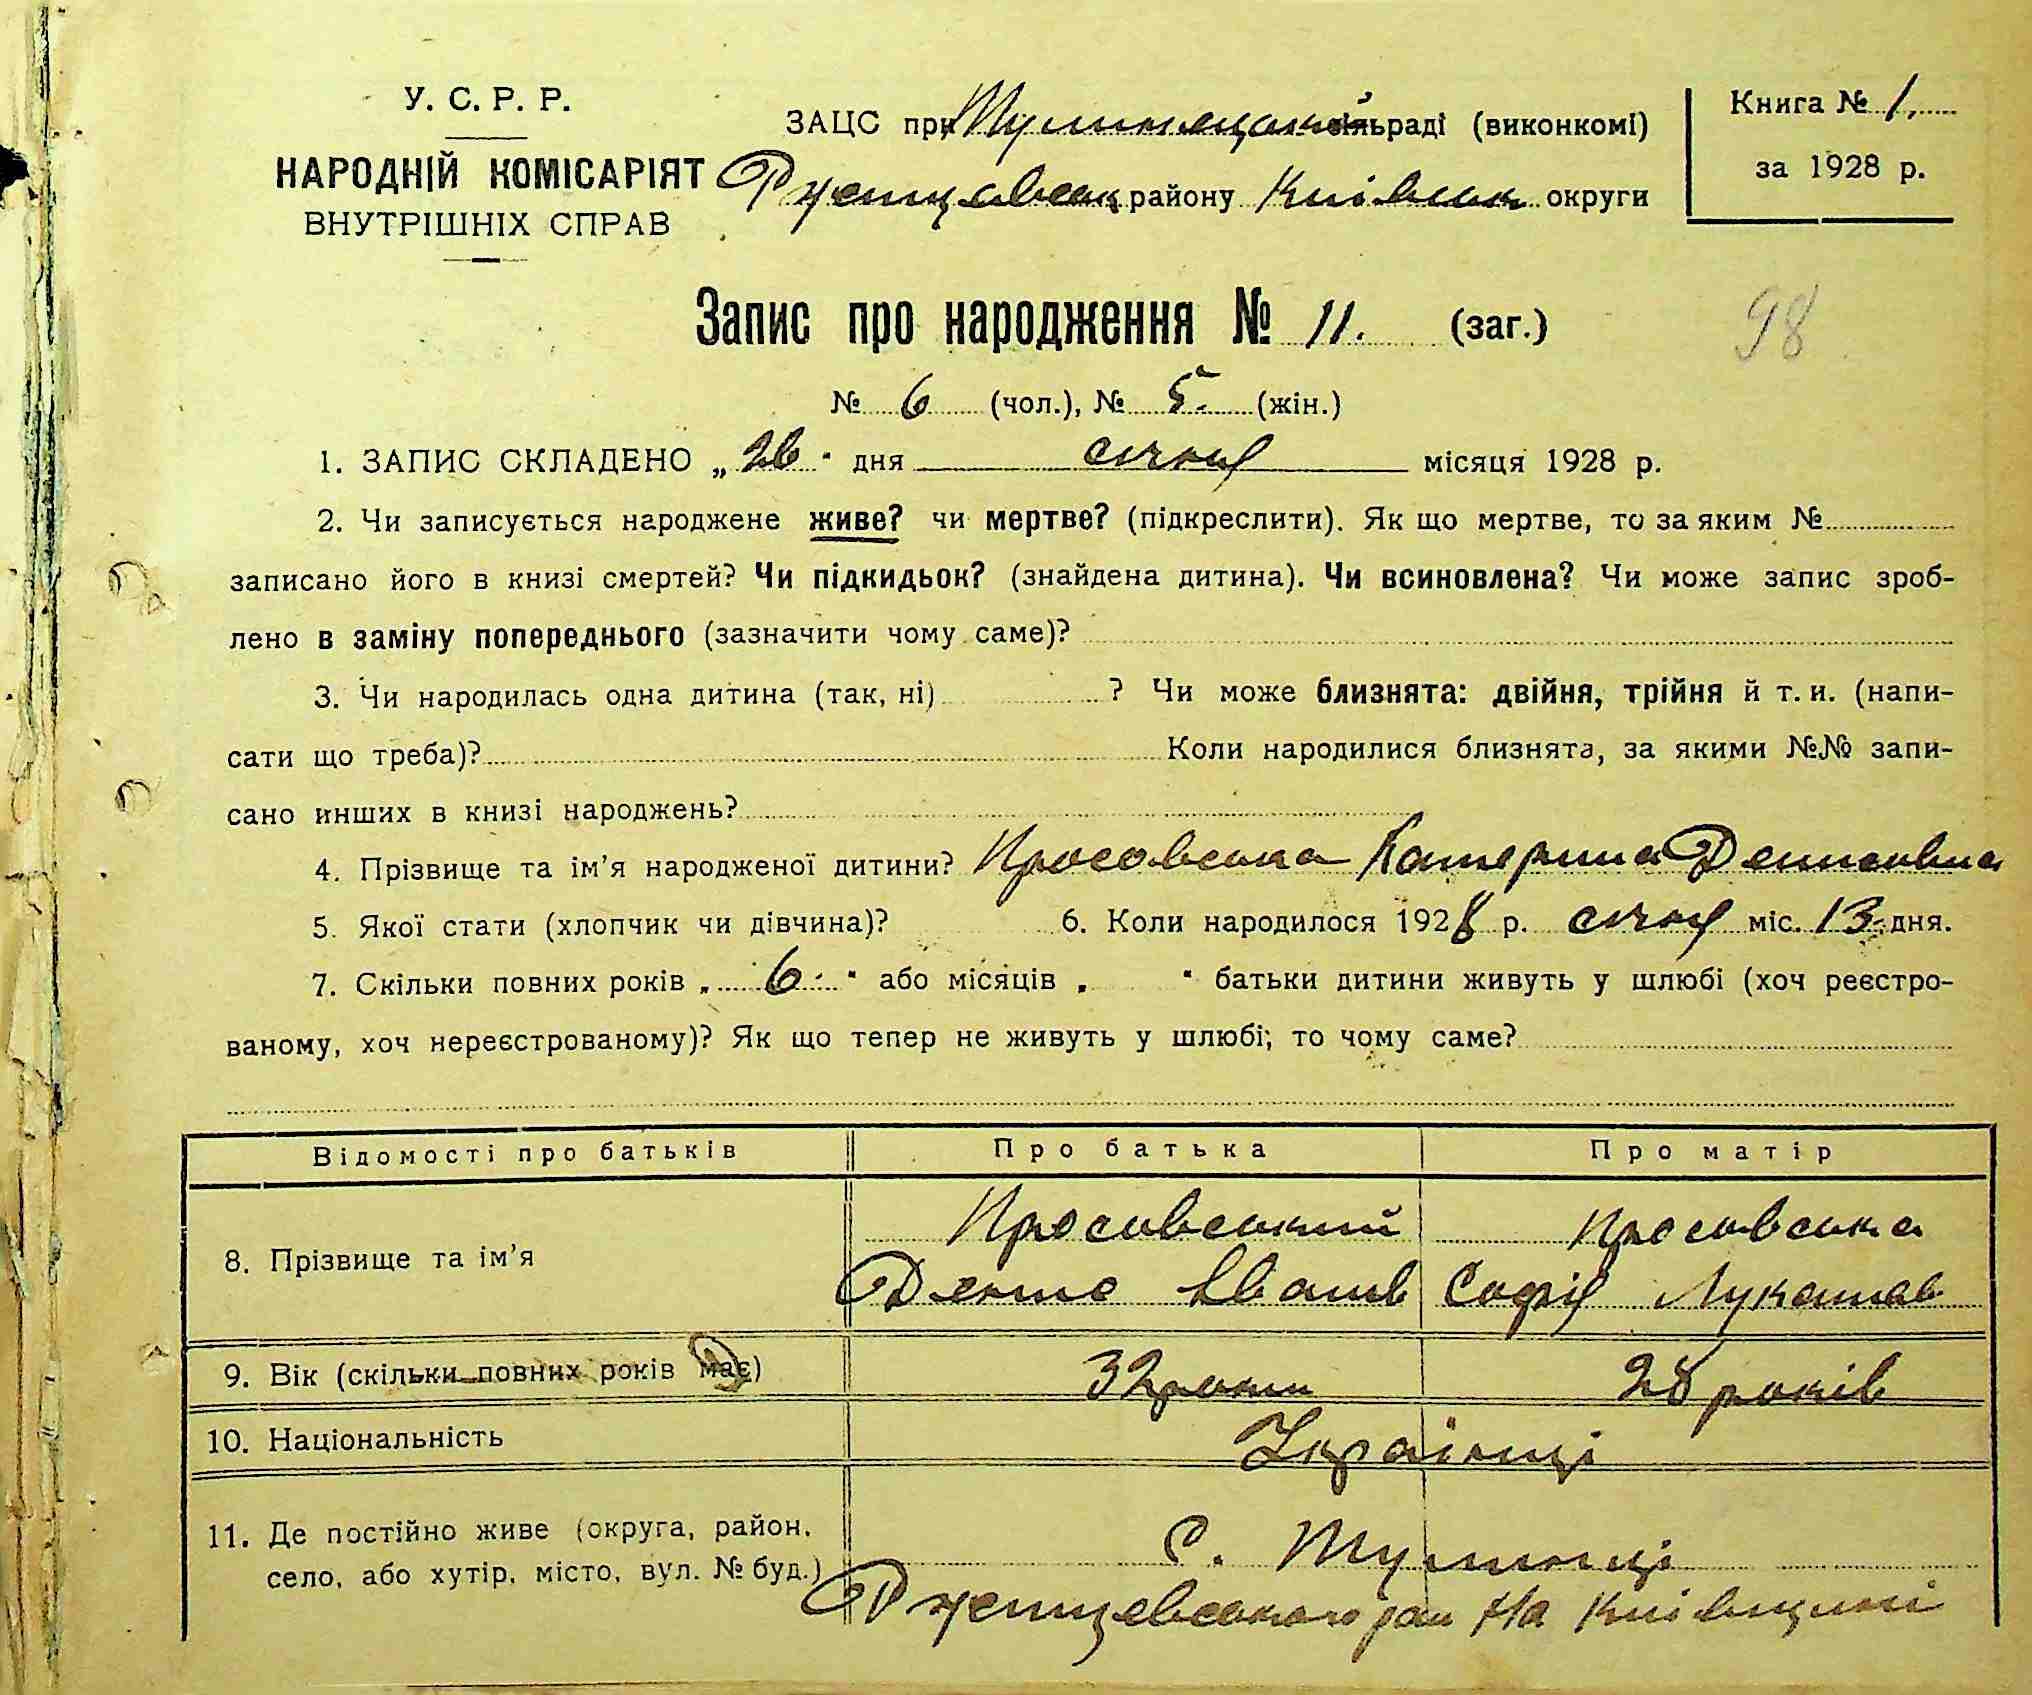 У. С. Р. Р.
НАРОДНІЙ КОМІСАРІЯТ
ВНУТРІШНІХ СПРАВ
ЗАЦС при Тулинецькій сільраді (виконкомі)
Ржищівськ району Київськ округи
Книга № 1.
за 1928 р.
Запис про народження № 11. (заг.)
98
№ 6 (чол.), № 5. (жін.)
1. ЗАПИС СКЛАДЕНО „26" дня січня місяця 1928 р.
2. Чи записується народжене живе? чи мертве? (підкреслити). Як що мертве, то за яким №
записано його в книзі смертей? Чи підкидьок? (знайдена дитина). Чи всиновлена? Чи може запис зроб-
лено в заміну попереднього (зазначити чому саме)?
3. Чи народилась одна дитина (так, ні) ? Чи може близнята: двійня, трійня й т. и. (напи-
сати що треба)? Коли народилися близнята, за якими №№ запи-
сано инших в книзі народжень?
4. Прізвище та ім’я народженої дитини? Просовська Катерина Денисовна
5. Якої стати (хлопчик чи дівчина)? 6. Коли народилося 1928 р. січня міс. 13. дня.
7. Скільки повних років „ 6 " або місяців „ " батьки дитини живуть у шлюбі (хоч реєстро-
ваному, хоч нереєстрованому)? Як що тепер не живуть у шлюбі; то чому саме?
Відомості про батьків Про батька Про матір
8. Прізвище та ім’я Просовський Денис Іванів Просовська Софія Лукашів
9. Вік (скільки повних років має) 32 роки 28 років
10. Національність Українці
11. Де постійно живе (округа, район, село, або хутір, місто, вул. № буд.) С. Тулинці
Ржищевського рай на Київщині